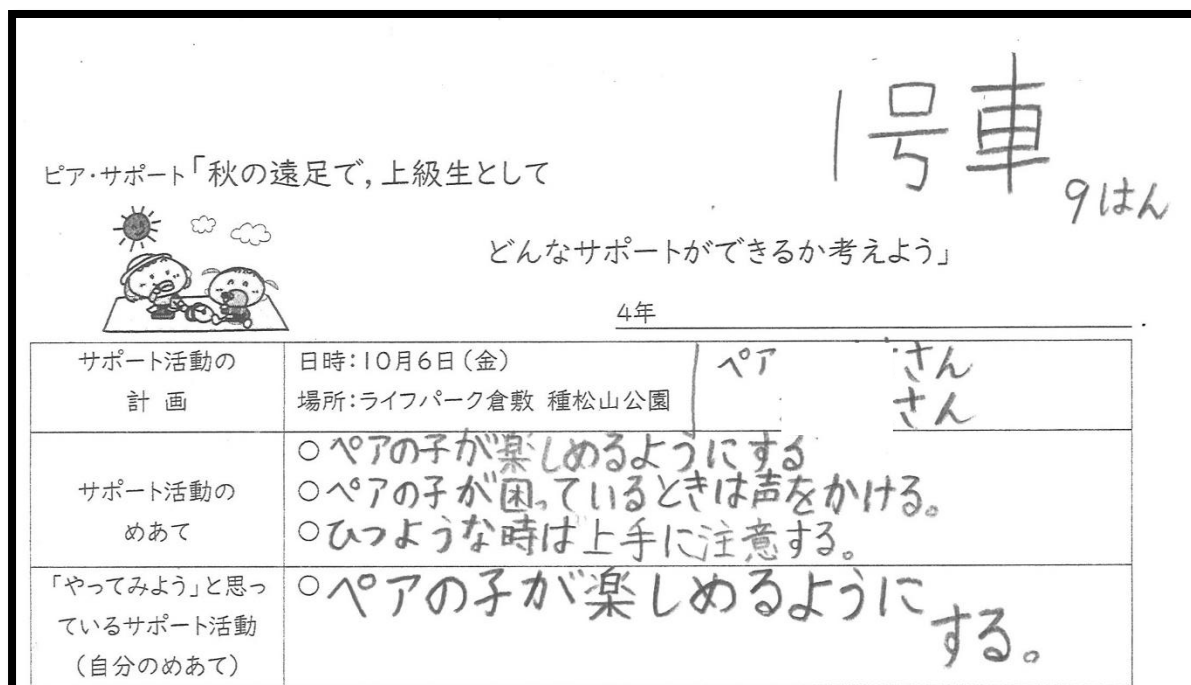 1号車
9はん
ピア・サポート「秋の遠足で，上級生として
どんなサポートができるか考えよう」
4年
サポート活動の
計画
日時：10月6日（金）
場所：ライフパーク倉敷 種松山公園
ペア
さん
さん
サポート活動の
めあて
○ペアの子が楽しめるようにする
○ペアの子が困っているときは声をかける。
○ひつような時は上手に注意する。
「やってみよう」と思っ
ているサポート活動
（自分のめあて）
○ペアの子が楽しめるように
する。